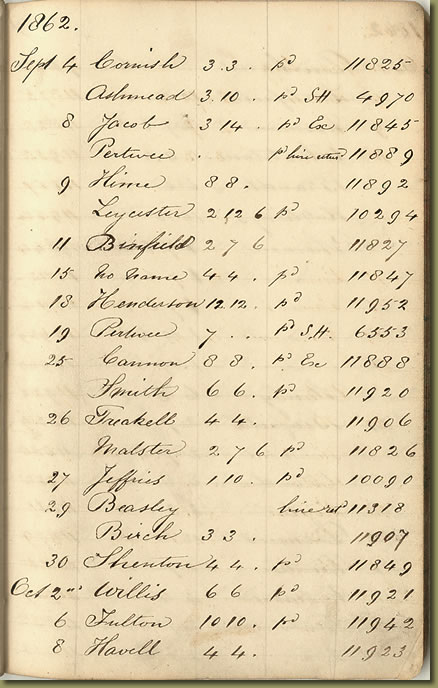 1862.
Sept 4 Cornish 3.3. pd 11825
Ashmead 3.10. pd SH 4970
8 Jacob 3 14. pd Ex 11845
Pertwee . pd hire retd 11889
9 Hime 8 8. 11892
Leycester 2 12 6 pd 10294
11 Binfield 2 7 6 11827
15 No name 4 4. pd 11847
18 Henderson 12 12. pd 11952
19 Pertwee 7 . . pd S.H. 6553
25 Cannon 8 8. pd Ex 11888
Smith 6 6. pd 11920
26 Treakell 4 4. 11906
Malster 2 7 6 pd 11826
27 Jeffries 1 10. pd 10090
29 Beasley hire retd 11318
Birch 3 3. 11907
30 Shenton 4 4. pd 11849
Oct 2nd Willis 6 6 pd 11921
6 Fulton 10 10. pd 11942
8 Havell 4 4. 11923